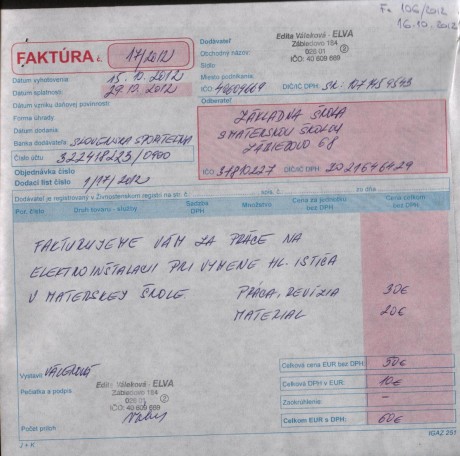 Fa 106/2012
16.10.2012
FAKTÚRA č. 17/2012
Dodávateľ
Obchodný názov:
Edita Váleková - ELVA
Zábiedovo 184
026 01 ②
IČO: 40 609 669
Sídlo
Miesto podnikania
Dátum vyhotovenia 15.10.2012
Dátum splatnosti 29.10.2012
IČO 40609669 DIČ/IČ DPH
Dátum vzniku daňovej povinnosti
Forma úhrady
Dátum dodania
Banka dodávateľa SLOVENSKÁ SPORITEĽŇA
Číslo účtu 322418223/0900
Objednávka číslo
Dodací list číslo 1/17/2012
Odberateľ
ZÁKLADNÁ ŠKOLA
S MATERSKOU ŠKOLOU
ZÁBIEDOVO 68
IČO 37810227 DIČ/IČ DPH 2021646429
Dodávateľ je registrovaný v Živnostenskom registri na str. č. : spis. č. zo dňa
Por. číslo Druh tovaru - služby Sadzba DPH Množstvo Cena za jednotku bez DPH Cena celkom bez DPH
FAKTURUJEME VÁM ZA PRÁCE NA
ELEKTROINŠTALACII PRI VYMENE HL. ISTICA
V MATERSKEJ ŠKOLE. PRÁCA, REVÍZIA 30€
MATERIAL 20€
Vystavil VÁLEKOVÁ
Pečiatka a podpis
Edita Váleková - ELVA
Zábiedovo 184
026 01 ②
IČO: 40 609 669
Počet príloh
Celková cena EUR bez DPH 50€
Celková DPH v EUR: 10€
Zaokrúhlenie: –
Celkom EUR s DPH: 60€
J + K
IGAZ 251